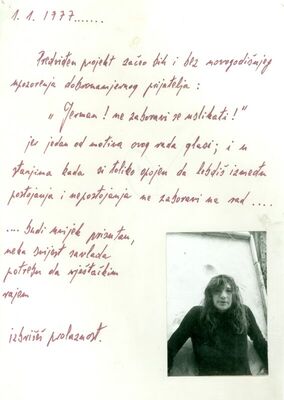 1. 1. 1977.......
Predviđen projekt začeo bih i bez novogodišnjeg
upozorenja dobronamjernog prijatelja :
„ Jerman ! ne zaboravi se uslikati ! “
jer jedan od motiva ovog rada glasi ; i u
stanjima kada si toliko opojen da lebdiš između
postojanja i nepostojanja ne zaboravi na rad ....
.... budi uvijek prisutan,
neka svijest savlada
potrebu da vještačkim
rajem
izbrišeš prolaznost.